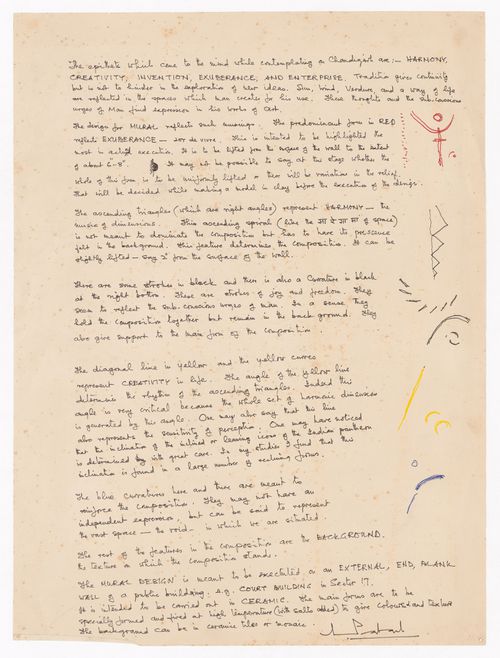 The epithets which come to the mind while contemplating on Chandigarh are:— HARMONY,
CREATIVITY, INVENTION, EXUBERANCE, AND ENTERPRISE. Tradition gives continuity
but is not to hinder in the exploration of new ideas. Sun, Wind, Verdure, and a way of life
are reflected in the spaces which man creates for his use. These thoughts and the sub-conscious
urges of Man find expression in his works of Art.
The design for MURAL reflects such musings. The predominant form in RED
reflects EXUBERANCE — This is intended to be highlighted the
most in actual execution. It is to be lifted from the surface of the wall to the extent
of about 6-8". It may not be possible to say at this stage whether the
whole of this form is to be uniformly lifted or there will be variation in the relief.
That will be decided while making a model in clay before the execution of the design.
The ascending triangles (which are right angles) represent HARMONY — the
music of dimensions. This ascending spiral (like the सा रे गा मा of space)
is not meant to dominate the composition but has to have its presence
felt in the background. This feature determines the composition. It can be
slightly lifted — say 2" from the surface of the wall.
There are some strokes in black and there is also a curvature in black
at the right bottom. These are strokes of joy and freedom. They
seem to reflect the sub-conscious urges of man. In a sense they
hold the composition together but remain in the back ground. They
also give support to the main form of the composition.
The diagonal line in yellow, and the yellow curves
represent CREATIVITY in life. The angle of the yellow line
determines the rhythm of the ascending triangles. Indeed this
angle is very critical because the whole set of harmonic dimensions
is generated by this angle. One may also say that this line
also represents the sensitivity of perception. One may have noticed
that the inclination of the inclined or leaning icons of the Indian pantheon
is determined with great care. In my studies I find that this
inclination is found in a large number of reclining forms.
The blue curvatures here and there are meant to
reinforce the composition. They may not have an
independent expression, but can be said to represent
the vast space — the void — in which we are situated.
The rest of the features in the composition are the BACKGROUND.
the texture on which the composition stands.
The MURAL DESIGN is meant to be executed on an EXTERNAL, END, BLANK
WALL of a public building. e.g. COURT BUILDING in Sector 17.
It is intended to be carried out in CERAMIC. The main forms are to be
specially formed and fired at high temperature (with salts added) to give colours and texture
The background can be in ceramic tiles or mosaic.